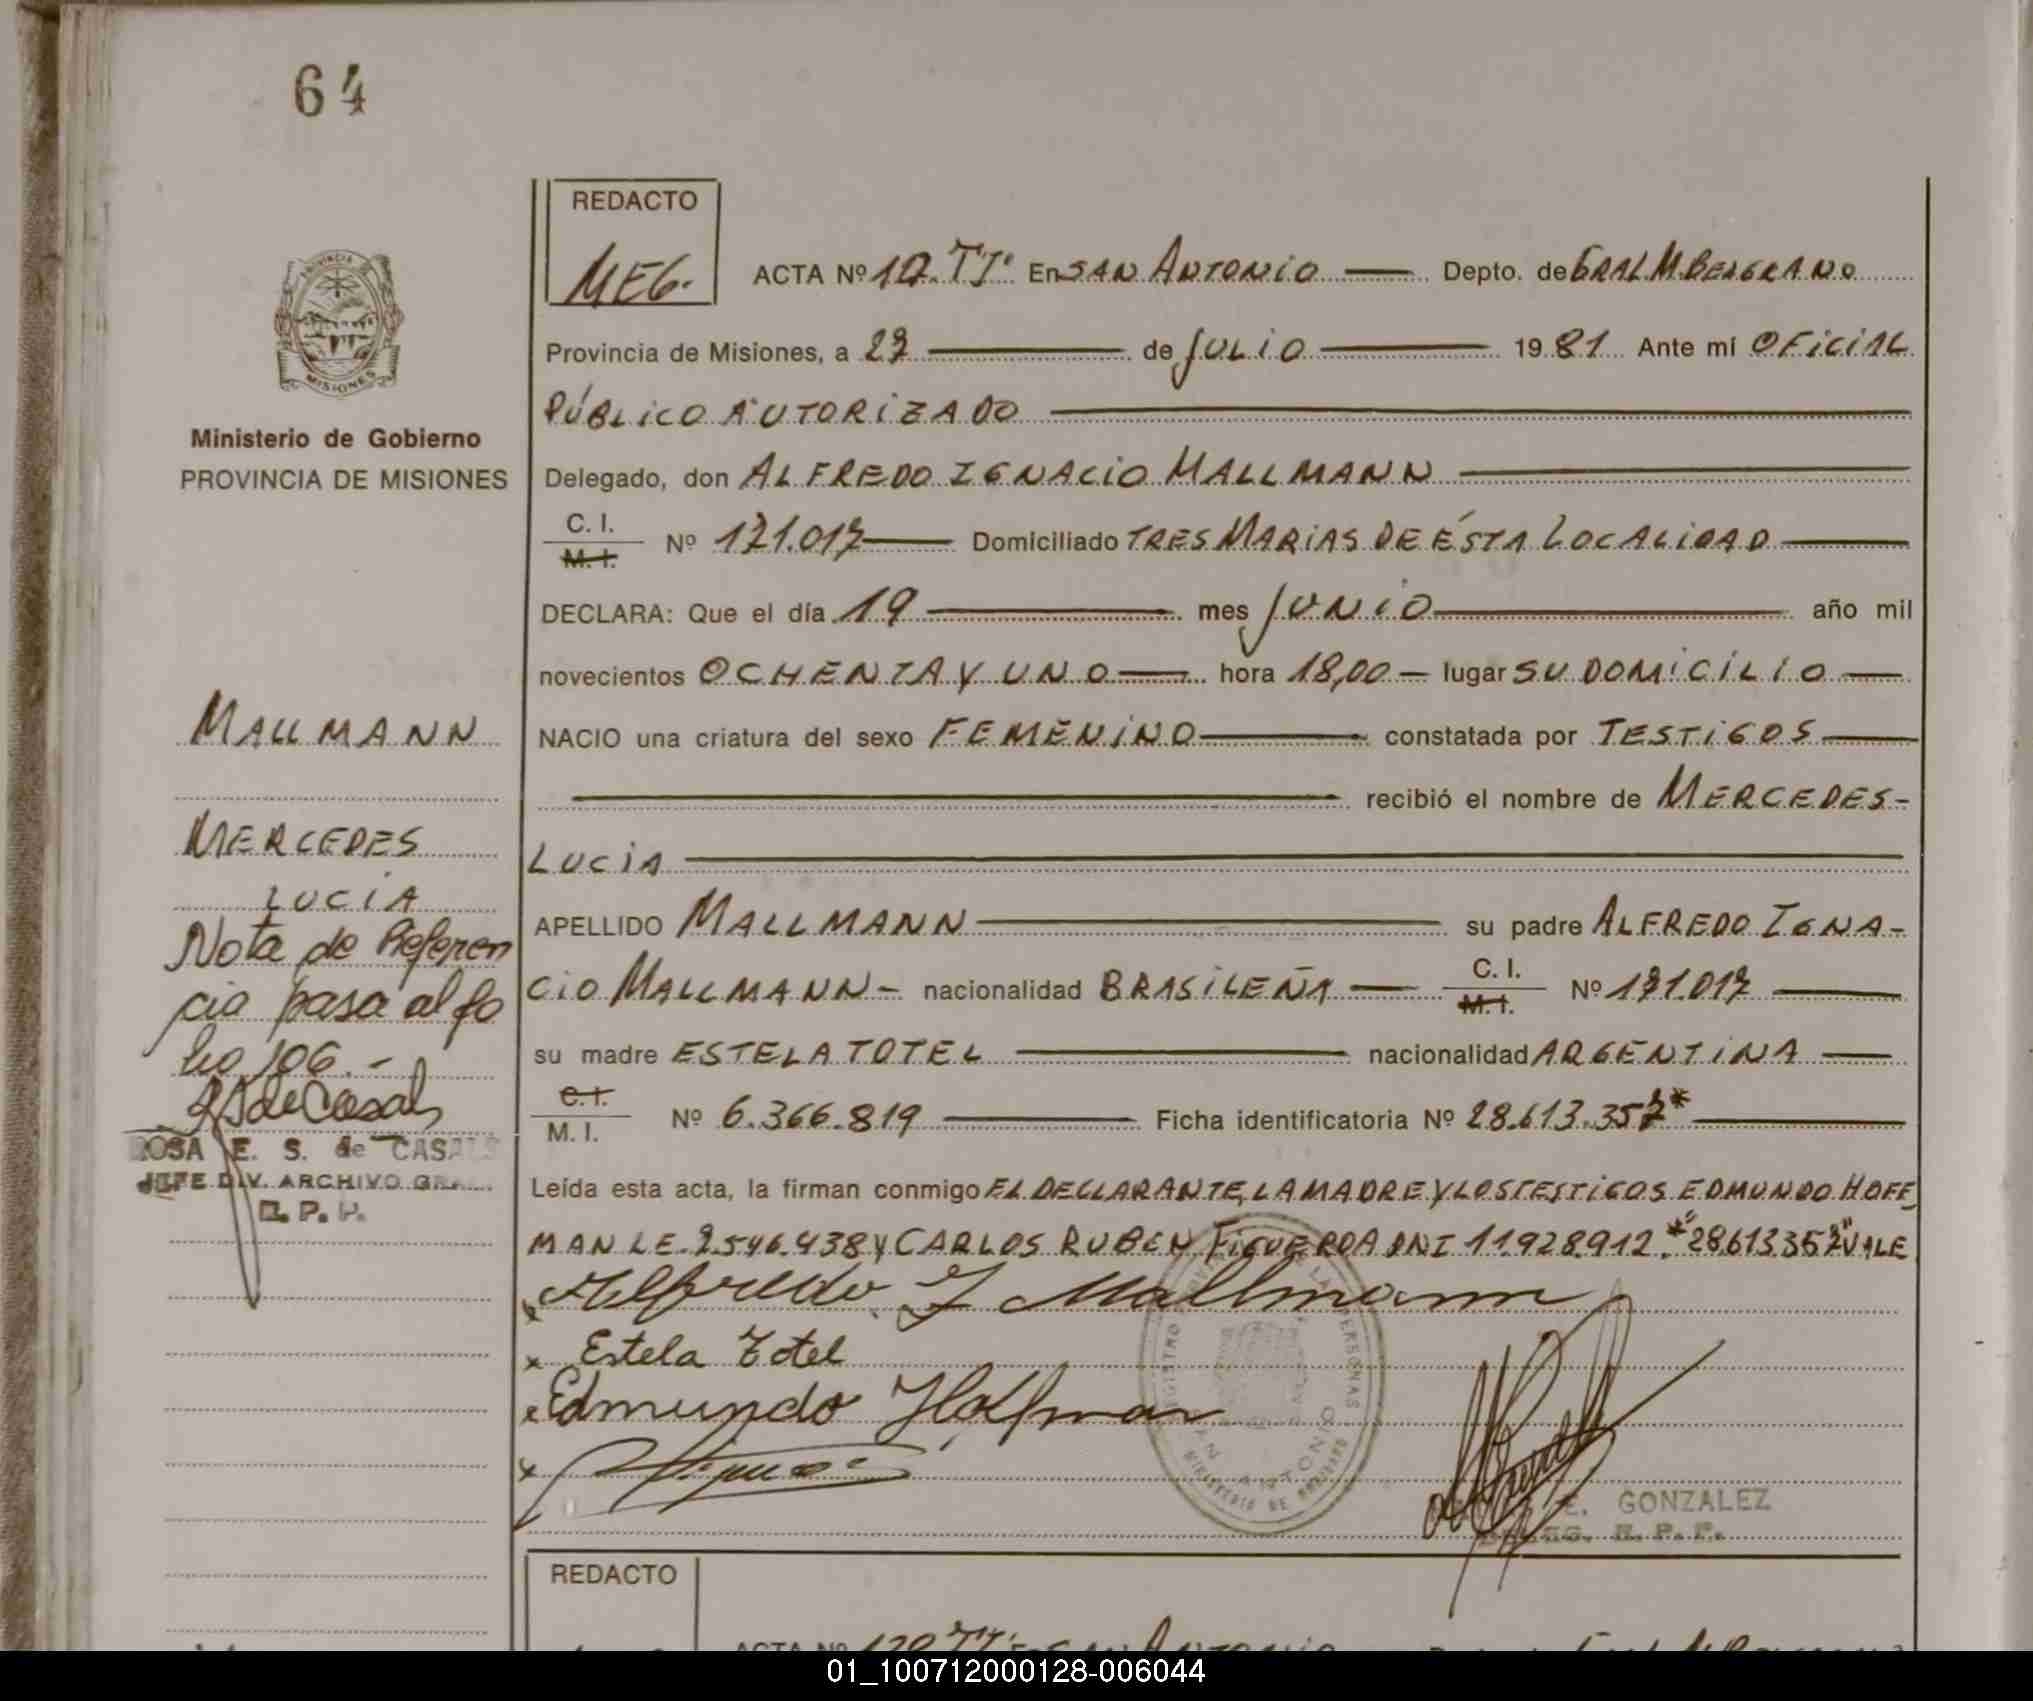 64
REDACTO
MEG.
ACTA Nº 10. TIº En SAN ANTONIO Depto. de GRAL M. BELGRANO
PROVINCIA DE
MISIONES
Provincia de Misiones, a 27 de JULIO 19 81 Ante mí OFICIAL
PÚBLICO AUTORIZADO
Ministerio de Gobierno
PROVINCIA DE MISIONES
Delegado, don ALFREDO IGNACIO MALLMANN
C. I.
M. I. Nº 171.017 Domiciliado TRES MARIAS DE ÉSTA LOCALIDAD
DECLARA: Que el día 19 mes JUNIO año mil
novecientos OCHENTA Y UNO hora 18,00 lugar SU DOMICILIO
MALLMANN
NACIO una criatura del sexo FEMENINO constatada por TESTIGOS
recibió el nombre de MERCEDES-
MERCEDES
LUCIA
LUCIA
APELLIDO MALLMANN su padre ALFREDO IGNA-
Nota de Referen
cia pasa al fo
lio 106.-
CIO MALLMANN- nacionalidad BRASILEÑA C. I.
M. I. Nº 171.017
su madre ESTELA TOTEL nacionalidad ARGENTINA
C. I.
M. I. Nº 6.366.819 Ficha identificatoria Nº 28.613.357*
RS de Casals
ROSA E. S. de CASALS
JEFE DIV. ARCHIVO GRAL.
R. P. P.
Leída esta acta, la firman conmigo EL DECLARANTE, LA MADRE Y LOS TESTIGOS EDMUNDO HOFF
MAN LE. 2.546.438 Y CARLOS RUBEN FIGUEROA DNI 11.928.912. *"28.613.357" VALE
x Alfredo I Mallmann
x Estela Totel
x Edmundo Hoffman
x
REGISTRO DE LAS PERSONAS
SAN ANTONIO
MINISTERIO DE GOBIERNO
E. GONZALEZ
DELEG. R. P. P.
REDACTO
ACTA Nº TIº En SAN ANTONIO
01_100712000128-006044